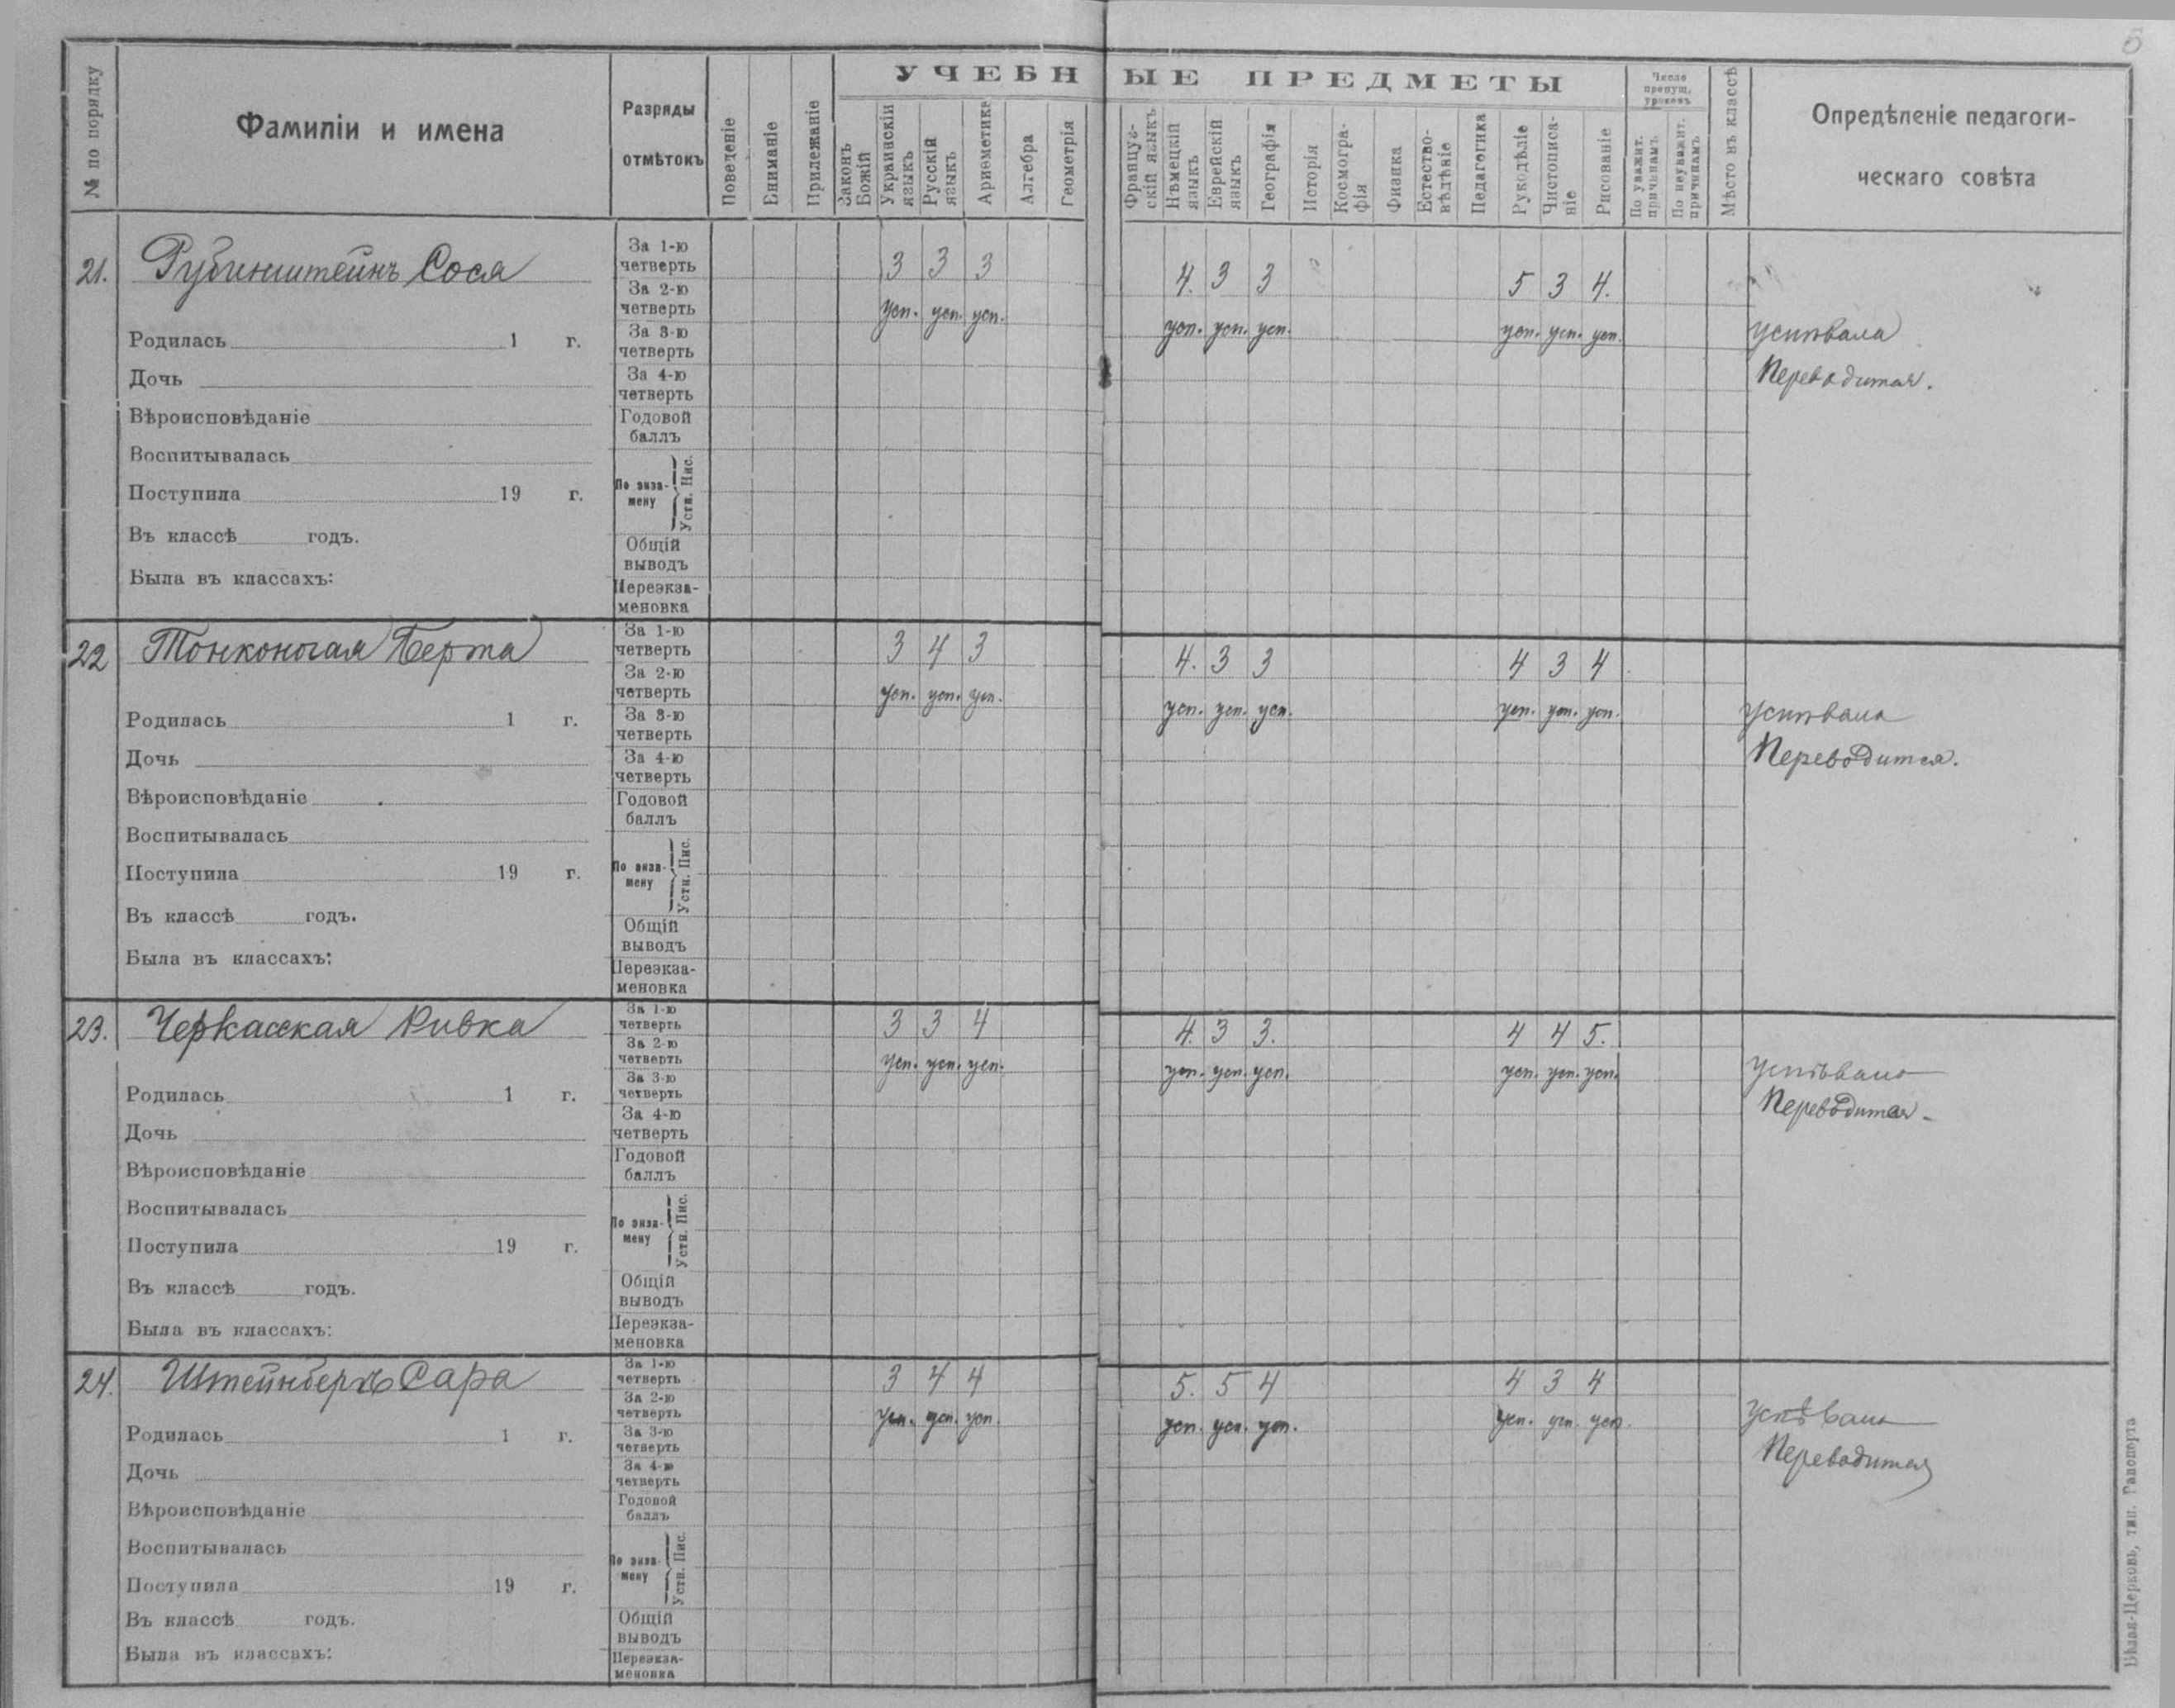 5
УЧЕБНЫЕ ПРЕДМЕТЫ
№ по порядку
Фамиліи и имена
Разряды
отмѣтокъ
Поведеніе
Вниманіе
Прилежаніе
Законъ Божій
Украинскій языкъ
Русскій языкъ
Ариѳметика
Алгебра
Геометрія
Француз-
скій языкъ
Нѣмецкій языкъ
Еврейскій языкъ
Географія
Исторія
Космогра-
фія
Физика
Естество-
вѣдѣніе
Педагогика
Рукодѣліе
Чистописа-
ніе
Рисованіе
Число
пропущ.
уроковъ
По уважит.
причинамъ
По неуважит.
причинамъ
Мѣсто въ классѣ
Опредѣленіе педагоги-
ческаго совѣта
21. Рубинштейнъ Сося
За 1-ю
четверть 3 3 3 4. 3 3 5 3 4.
За 2-ю
четверть усп. усп. усп. усп. усп. усп. усп. усп. усп. успѣвала
Родилась 1 г.
За 3-ю
четверть
Переводится.
Дочь
За 4-ю
четверть
Вѣроисповѣданіе
Годовой
баллъ
Воспитывалась
По экза-
мену Устн. Пис.
Поступила 19 г.
Въ классѣ годъ.
Общій
выводъ
Была въ классахъ:
Переэкза-
меновка
22 Тонконогая Берта
За 1-ю
четверть 3 4 3 4. 3 3 4 3 4
За 2-ю
четверть усп. усп. усп. усп. усп. усп. усп. усп. усп. успѣвала
Родилась 1 г.
За 3-ю
четверть
Переводится.
Дочь
За 4-ю
четверть
Вѣроисповѣданіе
Годовой
баллъ
Воспитывалась
По экза-
мену Устн. Пис.
Поступила 19 г.
Въ классѣ годъ.
Общій
выводъ
Была въ классахъ:
Переэкза-
меновка
23. Черкасская Ривка
За 1-ю
четверть 3 3 4 4. 3 3. 4 4 5.
За 2-ю
четверть усп. усп. усп. усп. усп. усп. усп. усп. усп. успѣвала
Родилась 1 г.
За 3-ю
четверть
Переводится.
Дочь
За 4-ю
четверть
Вѣроисповѣданіе
Годовой
баллъ
Воспитывалась
По экза-
мену Устн. Пис.
Поступила 19 г.
Въ классѣ годъ.
Общій
выводъ
Была въ классахъ:
Переэкза-
меновка
24. Штейнбергъ Сара
За 1-ю
четверть 3 4 4 5. 5 4 4 3 4
За 2-ю
четверть усп. усп. усп. усп. усп. усп. усп. усп. усп. успѣвала
Родилась 1 г.
За 3-ю
четверть
Переводится
Дочь
За 4-ю
четверть
Вѣроисповѣданіе
Годовой
баллъ
Воспитывалась
По экза-
мену Устн. Пис.
Поступила 19 г.
Въ классѣ годъ.
Общій
выводъ
Была въ классахъ:
Переэкза-
меновка
Бѣлая-Церковь, тип. Гапоперта